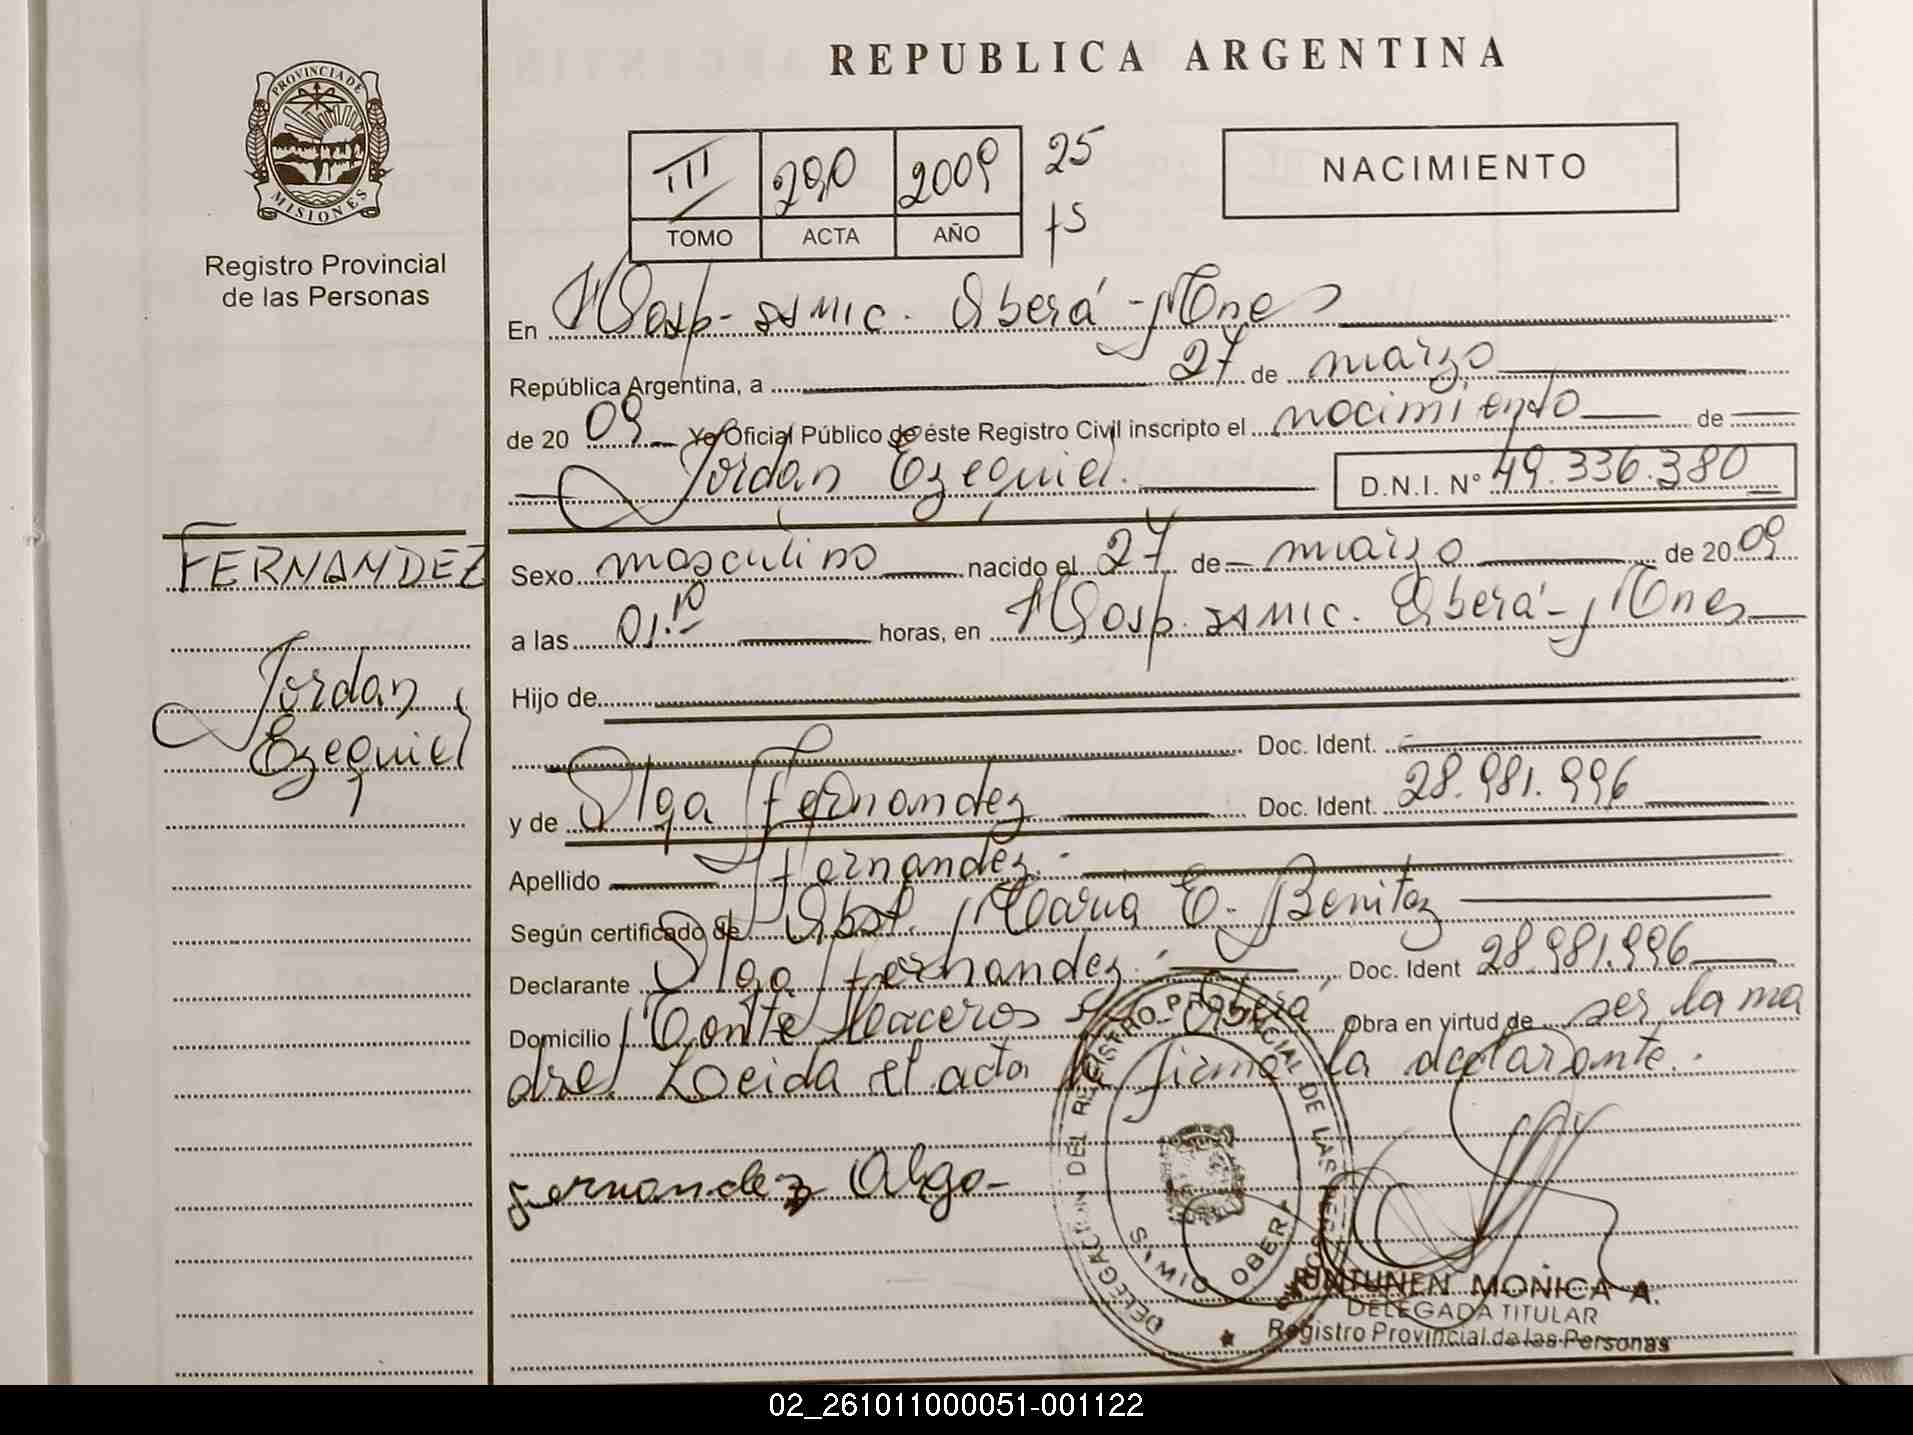 REPUBLICA ARGENTINA
PROVINCIA DE
MISIONES
Registro Provincial
de las Personas
III 290 2009 25
TOMO ACTA AÑO 75
NACIMIENTO
En Hosp. SAMIC. Oberá - Mnes
República Argentina, a 27 de marzo
de 20 09 Yo Oficial Público de éste Registro Civil inscripto el nacimiento de
Jordan Ezequiel. D.N.I. N° 49.336.380
FERNANDEZ
Jordan
Ezequiel
Sexo masculino nacido el 27 de marzo de 20 09
a las 01.10 horas, en Hosp. SAMIC. Oberá - Mnes
Hijo de
Doc. Ident.
y de Olga Fernandez Doc. Ident. 28.981.996
Apellido Fernandez.
Según certificado de Obst. Maria E. Benitez
Declarante Olga Fernandez. Doc. Ident 28.981.996
Domicilio Monte Caceros Oberá Obra en virtud de ser la ma
dre. Leida el acta la firma la declarante.
Fernandez Olga
DELEGACION DEL REGISTRO PROVINCIAL DE LAS PERSONAS
OBERA
MONICA A.
DELEGADA TITULAR
Registro Provincial de las Personas
02_261011000051-001122